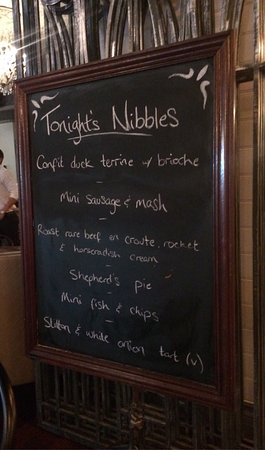 Tonight's Nibbles
Confit duck terrine w/ brioche
-
Mini Sausage & mash
-
Roast rare beef en croute, rocket
& horseradish cream
-
Shepherd's pie
-
Mini fish & chips
-
Stilton & white onion tart (v)